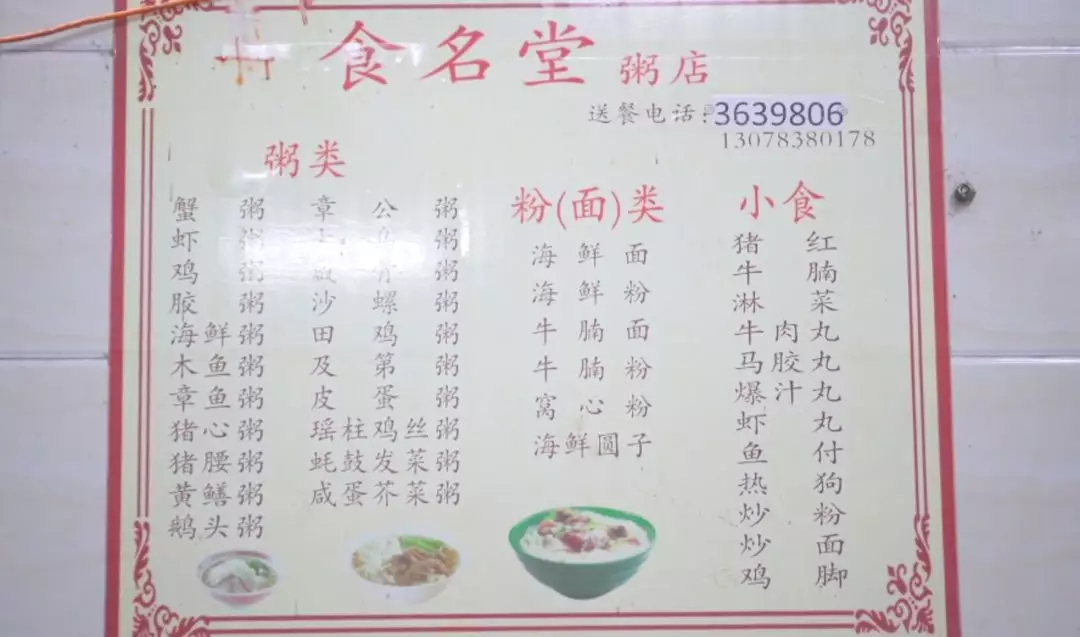 食名堂 粥店
送餐电话:3639806
13078380178
粥类
蟹粥
虾粥
鸡粥
胶粥
海鲜粥
木鱼粥
章鱼粥
猪心粥
猪腰粥
黄鳝粥
鹅头粥
章公粥
粥
骨粥
沙螺粥
田鸡粥
及第粥
皮蛋粥
瑶柱鸡丝粥
蚝鼓发菜粥
咸蛋芥菜粥
粉(面)类
海鲜面
海鲜粉
牛腩面
牛腩粉
窝心粉
海鲜圆子
小食
猪红
牛腩
淋菜
牛肉丸
马胶丸
爆汁丸
虾丸
鱼付
热狗
炒粉
炒面
鸡脚